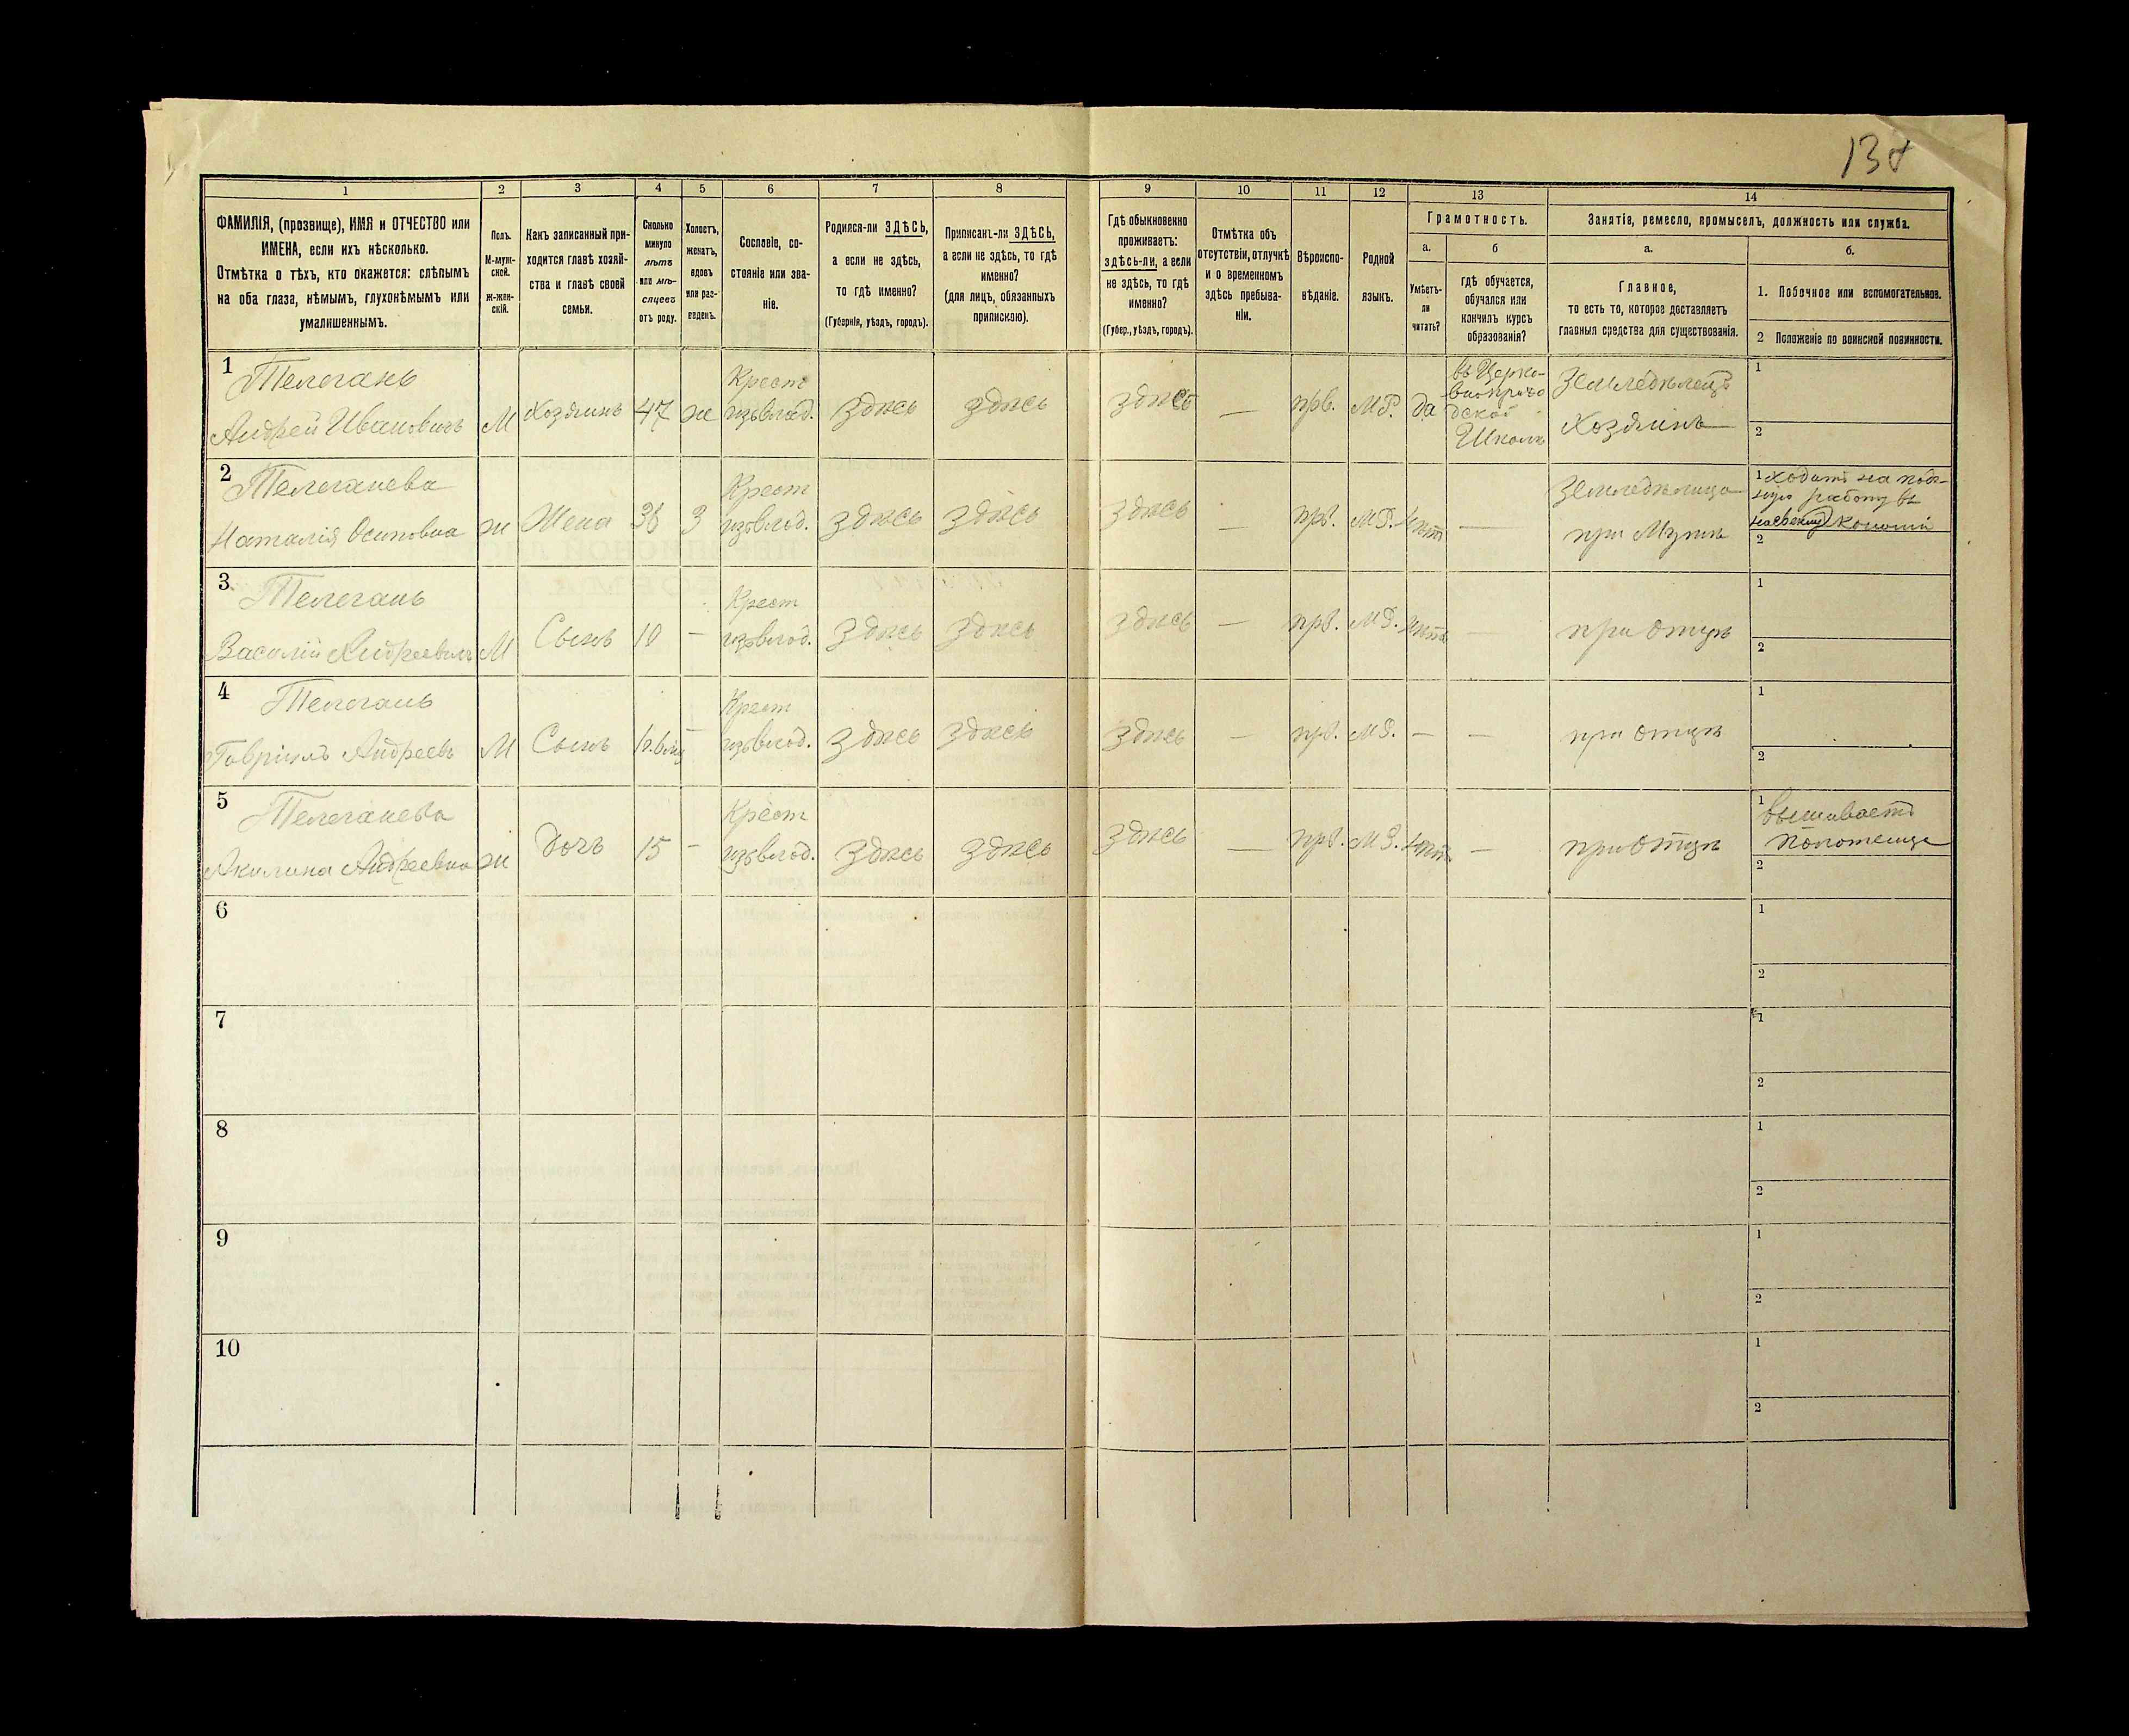 13
1 2 3 4 5 6 7 8 9 10 11 12 13 14
ФАМИЛІЯ, (прозвище), ИМЯ и ОТЧЕСТВО или
ИМЕНА, если ихъ нѣсколько.
Отмѣтка о тѣхъ, кто окажется: слѣпымъ
на оба глаза, нѣмымъ, глухонѣмымъ или
умалишеннымъ.
Полъ.
М-муж-
ской.
ж-жен-
скій.
Какъ записанный при-
ходится главѣ хозяй-
ства и главѣ своей
семьи.
Сколько
минуло
лѣтъ
или мѣ-
сяцевъ
отъ роду.
Холостъ,
женатъ,
вдовъ
или раз-
веденъ.
Сословіе, со-
стояніе или зва-
ніе.
Родился-ли ЗДѢСЬ,
а если не здѣсь,
то гдѣ именно?
(Губернія, уѣздъ, городъ).
Приписанъ-ли ЗДѢСЬ,
а если не здѣсь, то гдѣ
именно?
(для лицъ, обязанныхъ
припискою).
Гдѣ обыкновенно
проживаетъ:
здѣсь-ли, а если
не здѣсь, то гдѣ
именно?
(Губер., уѣздъ, городъ).
Отмѣтка объ
отсутствіи, отлучкѣ
и о временномъ
здѣсь пребыва-
ніи.
Вѣроиспо-
вѣданіе.
Родной
языкъ.
Грамотность.
а.
Умѣетъ-
ли
читать?
б
гдѣ обучается,
обучался или
кончилъ курсъ
образованія?
Занятіе, ремесло, промыселъ, должность или служба.
а.
Главное,
то есть то, которое доставляетъ
главныя средства для существованія.
б.
1. Побочное или вспомогательное.
2 Положеніе по воинской повинности.
1
Телеганъ
Андрей Ивановичъ
М
Хозяинъ
47
ж
Крест
изъ влад.
здѣсь
здѣсь
здѣсь
—
прв.
М.Р.
да
въ Церко-
вноприхо
дской
Школѣ
Земледѣлецъ
Хозяинъ
1
2
2
Телеганева
Наталія Осиповна
ж
Жена
36
З
Крест
изъ влад.
здѣсь
здѣсь
здѣсь
—
прв.
М.Р.
нѣтъ
—
Земледѣлица
при Мужѣ
1 Ходитъ на
работу въ
2
3
Телеганъ
Василій Андреевичъ
М
Сынъ
10
-
Крест
изъ влад.
здѣсь
здѣсь
здѣсь
—
прв.
М.Р.
нѣтъ
—
при отцѣ
1
2
4
Телеганъ
Гавріилъ Андреевъ
М
Сынъ
—
Крест
изъ влад.
здѣсь
здѣсь
здѣсь
—
прв.
М.Р.
—
—
при отцѣ
1
2
5
Телеганева
Акилина Андреевна
ж
Дочъ
15
-
Крест
изъ влад.
здѣсь
здѣсь
здѣсь
—
прв.
М.Р.
нѣтъ
—
при отцѣ
1 вышиваетъ
полотенца
2
6
1
2
7
1
2
8
1
2
9
1
2
10
1
2